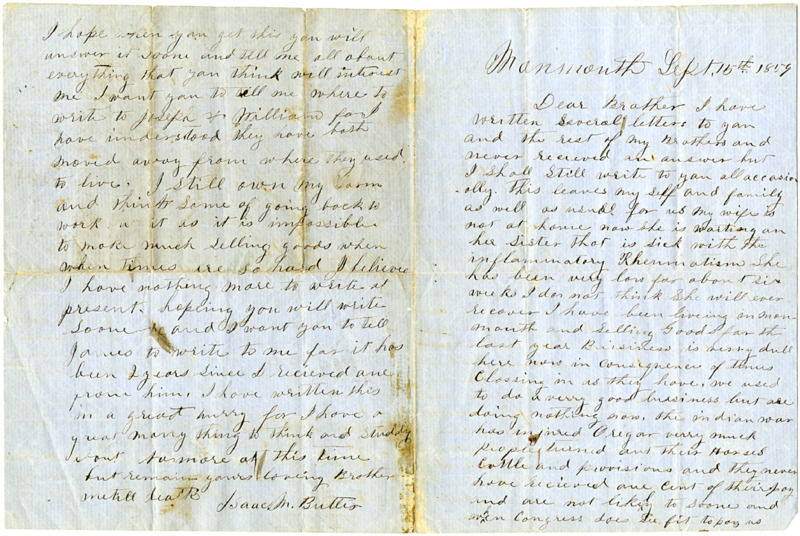 Monmouth Sept. 15th 1859
Dear Brother I have
written several letters to you
and the rest of my Brothers and
never recieved an answer but
I shall Still write to you all occasion
-olly. this leaves my self and family
as well as usual for us my wife is
not at home now She is waiting on
her Sister that is sick with the
inflamatory Rheumatism She
has been very low for about six
weeks I do not think She will ever
recover I have been liveing in mon
mouth and Selling Goods for the
last year Buisiness is very dull
here now in consequences of times
Clossing in as they have, we used
to do a very good business but are
doing nothing now. the indian war
has injured Oregon verry much
people turned out their Horses
Cattle and provisions and they never
have recieved one cent of their pay
and are not likely to Soone and
when Congress does See fit to pay us
I hope when you get this you will
answer it soone and tell me all about
everything that you think will intrest
me I want you to tell me where to
write to Josefa & William for I
have understood they have both
moved away from where they used
to live. I still own my farm
and think some of going back to
work it as it is impossible
to make much selling goods when
when times are so hard I believe
I have nothing more to write at
present. hopeing you will write
Soone and I want you to tell
James to write to me for it has
been 2 years since I recieved one
from him, I have written this
in a great hurry for I have a
great many thing to think and Studdy
about no more at this time
but remain yours loveing Brother
untill death
Isaac M. Butler